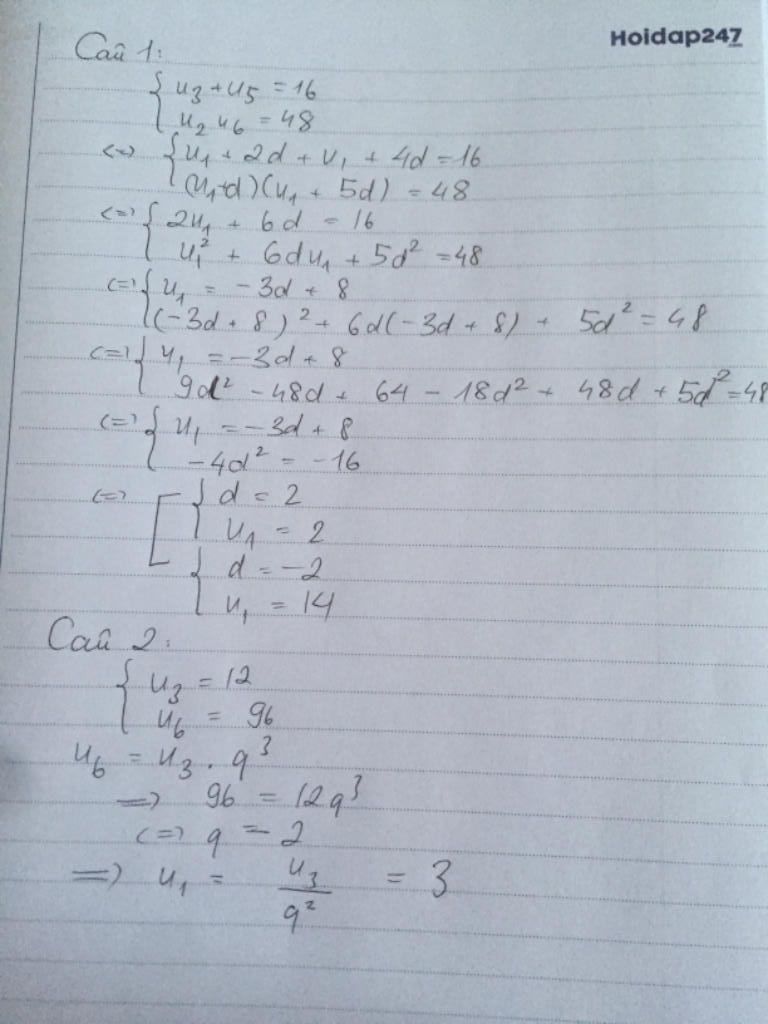 Hoidap247
Câu 1:
{ u₃ + u₅ = 16
{ u₂ u₆ = 48
<=> { u₁ + 2d + u₁ + 4d = 16
{ (u₁+d)(u₁ + 5d) = 48
<=> { 2u₁ + 6d = 16
{ u₁² + 6du₁ + 5d² = 48
<=> { u₁ = -3d + 8
{ (-3d + 8)² + 6d(-3d + 8) + 5d² = 48
<=> { u₁ = -3d + 8
{ 9d² - 48d + 64 - 18d² + 48d + 5d² = 48
<=> { u₁ = -3d + 8
{ -4d² = -16
<=> [ { d = 2
{ u₁ = 2
{ d = -2
{ u₁ = 14
Câu 2:
{ u₃ = 12
{ u₆ = 96
u₆ = u₃ . q³
=> 96 = 12q³
<=> q = 2
=> u₁ = u₃/q² = 3